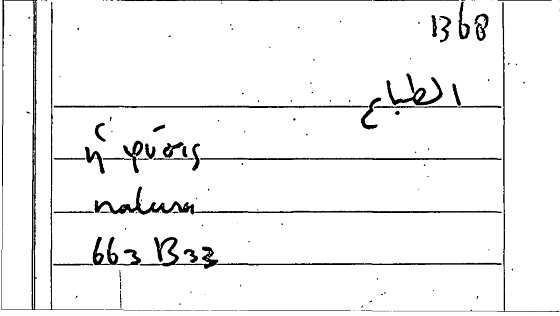 B68
الطباع
ἡ φύσις
natura
663 B33